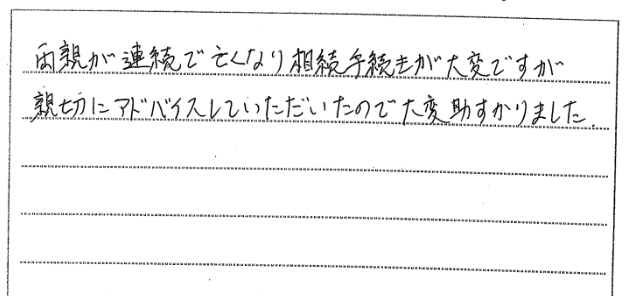 両親が連続で亡くなり相続手続きが大変ですが
親切にアドバイスしていただいたので大変助すかりました.